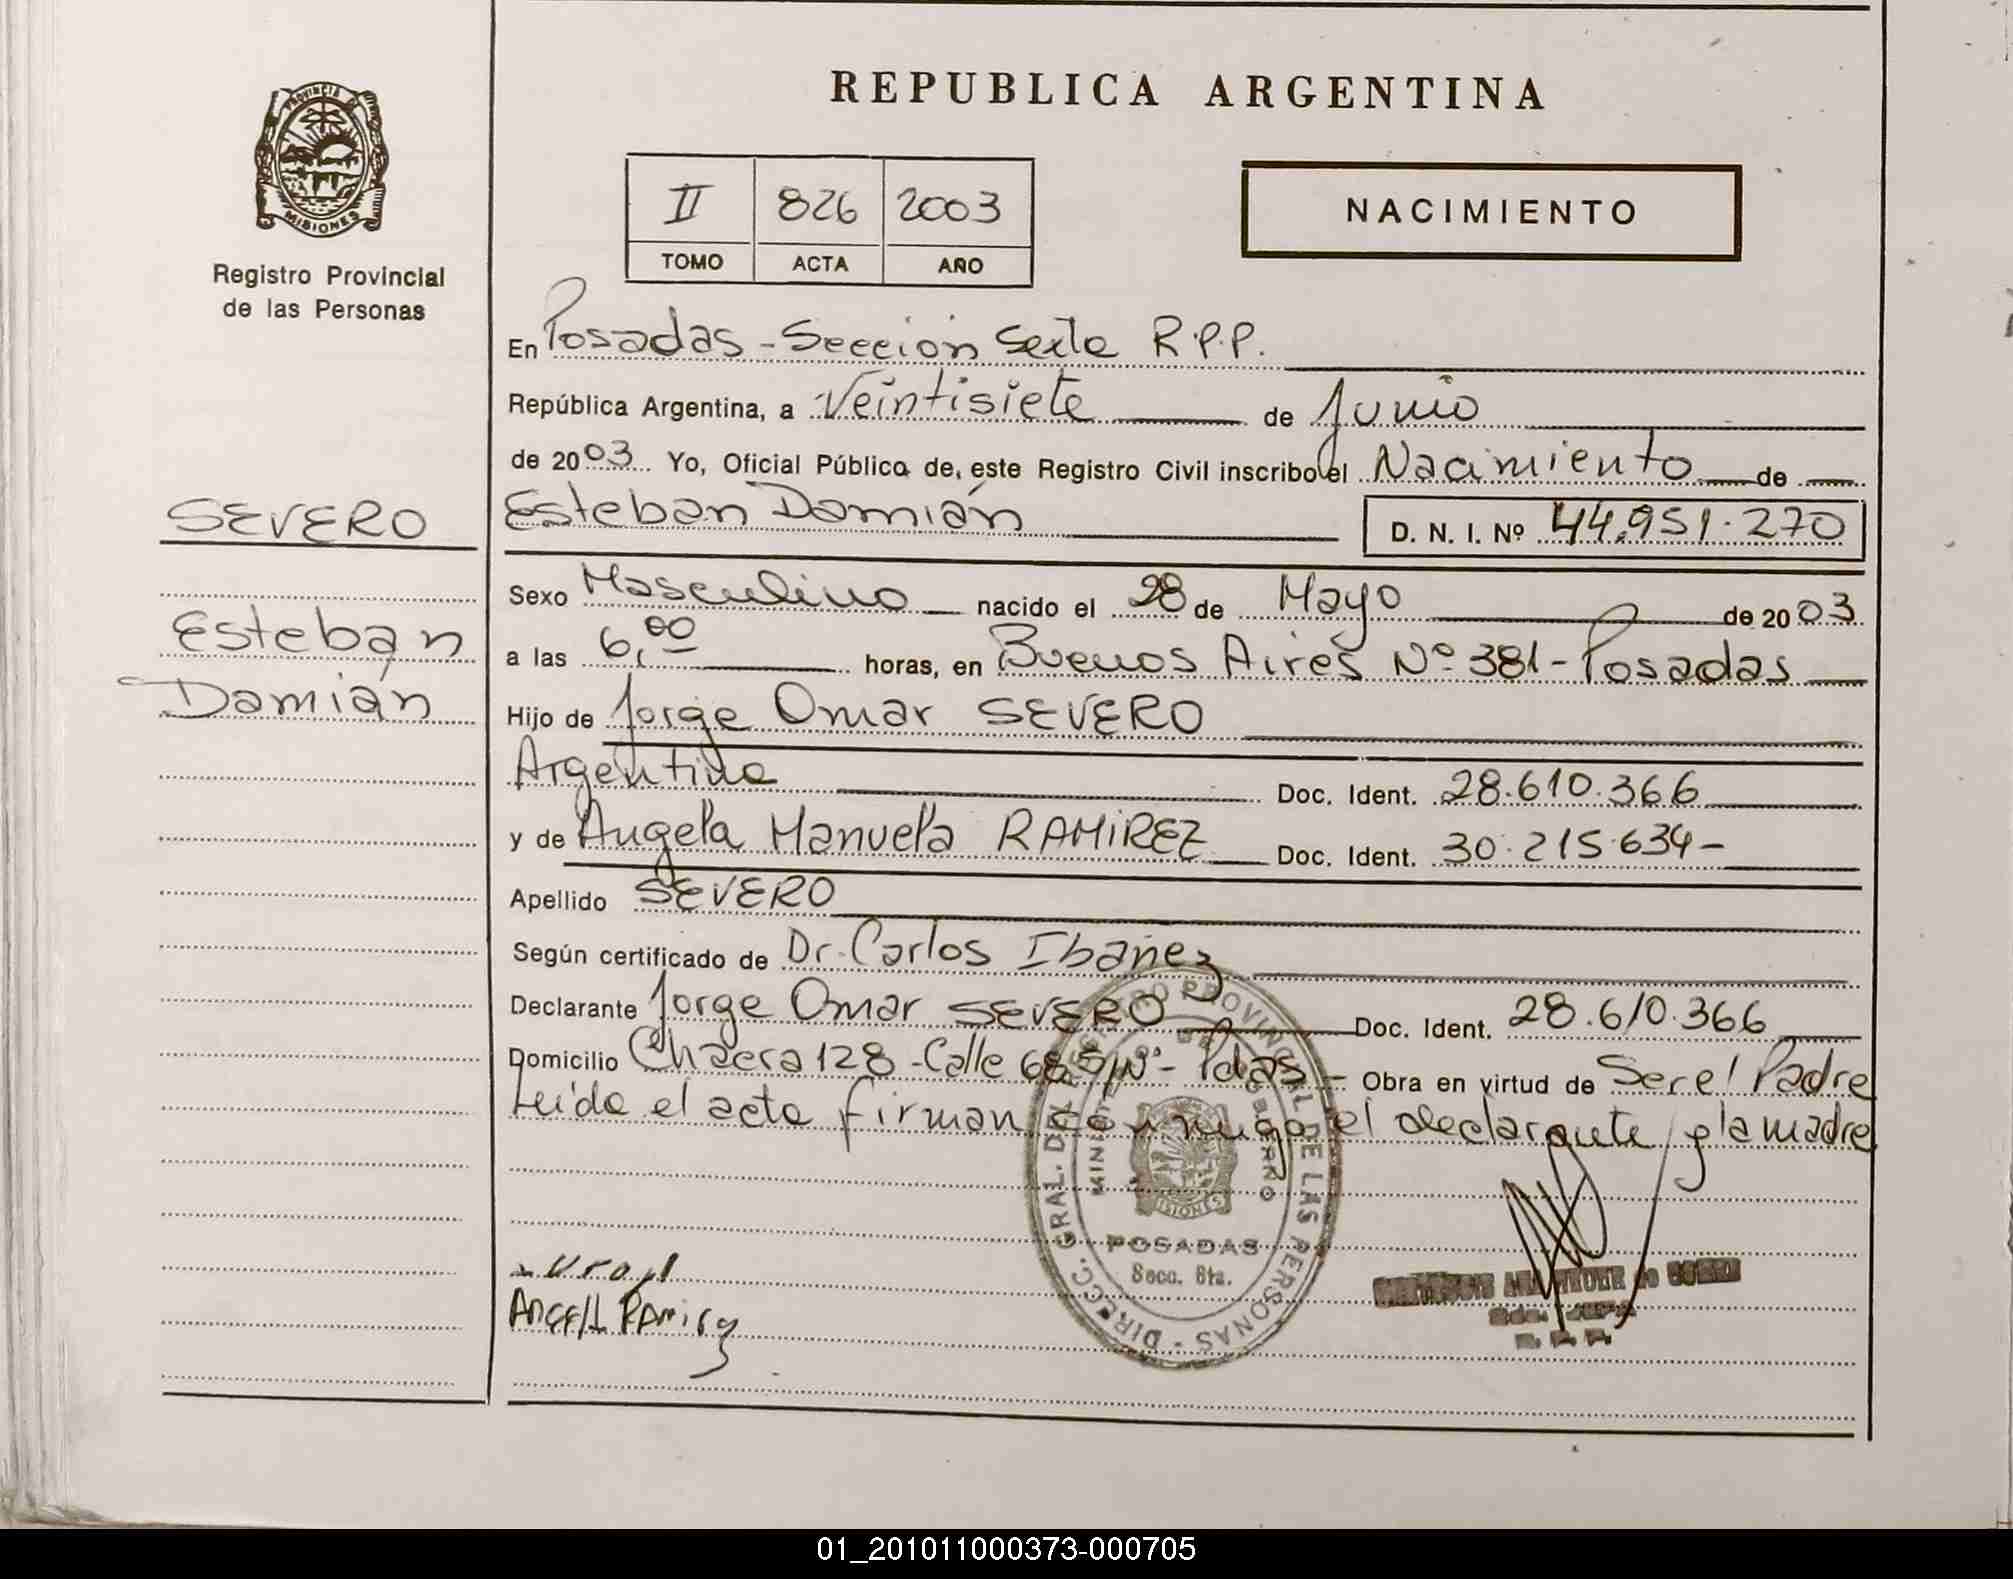 REPUBLICA ARGENTINA
PROVINCIA DE
MISIONES
Registro Provincial
de las Personas
II 826 2003
TOMO ACTA AÑO
NACIMIENTO
En Posadas - Sección Sexta R.P.P.
República Argentina, a Veintisiete de Junio
de 2003 Yo, Oficial Público de este Registro Civil inscribo el Nacimiento de
SEVERO
Esteban Damián
Esteban Damián D. N. I. Nº 44.951.270
Sexo Masculino nacido el 28 de Mayo de 2003
a las 6,00 horas, en Buenos Aires Nº 381 - Posadas
Hijo de Jorge Omar SEVERO
Argentina Doc. Ident. 28.610.366
y de Angela Manuela RAMIREZ Doc. Ident. 30.215.634-
Apellido SEVERO
Según certificado de Dr. Carlos Ibañez
Declarante Jorge Omar SEVERO Doc. Ident. 28.610.366
Domicilio Chacra 128 - Calle 68 S/Nº - Pdas - Obra en virtud de Ser el Padre
Leida el acta firman conmigo el declarante y la madre
DIRECC. GRAL. DEL REGISTRO PROVINCIAL DE LAS PERSONAS
MINISTERIO DE GOBIERNO
MISIONES
POSADAS
Secc. 6ta.
01_201011000373-000705